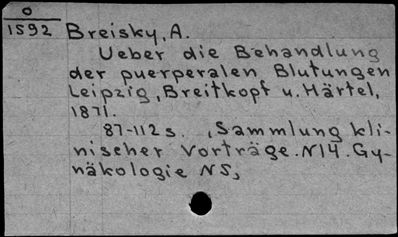 0
1592
Breisky, A.
Ueber die Behandlung
der puerperalen Blutungen
Leipzig, Breitkopf u. Härtel,
1871.
87-112 s. (Sammlung kli-
nischer Vorträge. N14. Gy-
näkologie N5)